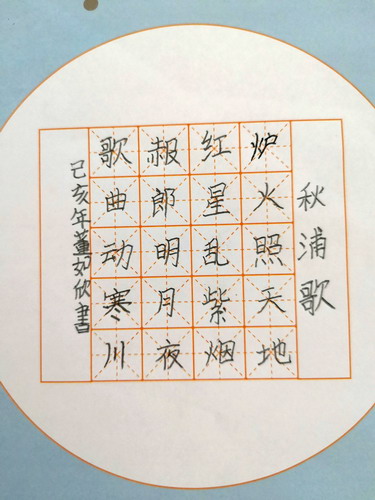 秋浦歌
炉火照天地
红星乱紫烟
赧郎明月夜
歌曲动寒川
己亥年董如欣書